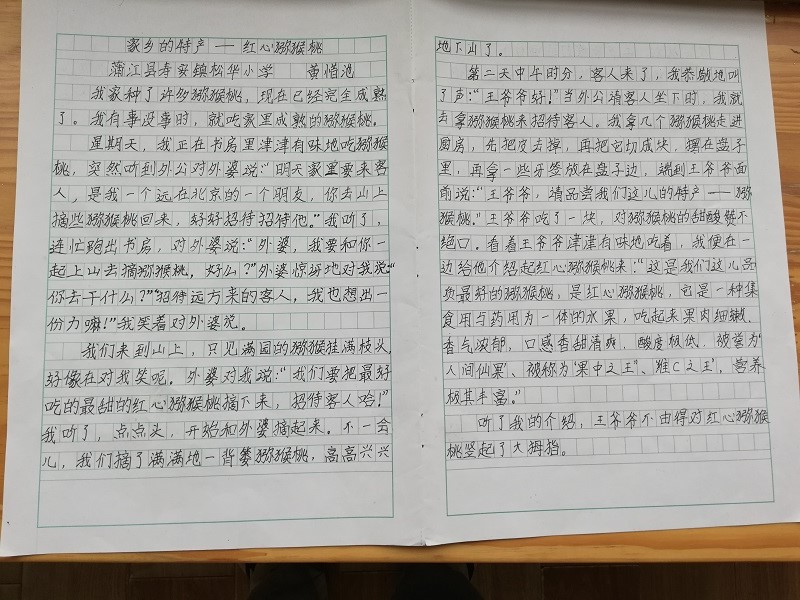 家乡的特产——红心猕猴桃
蒲江县寿安镇松华小学 黄怡池
我家种了许多猕猴桃，现在已经完全成熟
了。我有事没事时，就吃家里成熟的猕猴桃。
星期天，我正在书房里津津有味地吃猕猴
桃，突然听到外公对外婆说：“明天家里要来客
人，是我一个远在北京的一个朋友，你去山上
摘些猕猴桃回来，好好招待招待他。”我听了，
连忙跑出书房，对外婆说：“外婆，我要和你一
起上山去摘猕猴桃，好么？”外婆惊讶地对我说：“
你去干什么？”“招待远方来的客人，我也想出一
份力嘛！”我笑着对外婆说。
我们来到山上，只见满园的猕猴桃挂满枝头
好像在对我笑呢。外婆对我说：“我们要把最好
吃的最甜的红心猕猴桃摘下来，招待客人哈！”
我听了，点点头，开始和外婆摘起来。不一会
儿，我们摘了满满地一背篓猕猴桃，高高兴兴
地下山了。
第二天中午时分，客人来了，我恭敬地叫
了声：“王爷爷好！”当外公请客人坐下时，我就
去拿猕猴桃来招待客人。我拿几个猕猴桃走进
厨房，先把皮去掉，再把它切成块，摆在盘子
里，再拿一些牙签放在盘子边，端到王爷爷面
前说：“王爷爷，请品尝我们这儿的特产——猕
猴桃。”王爷爷吃了一块，对猕猴桃的甜酸赞不
绝口。看着王爷爷津津有味地吃着，我便在一
边给他介绍起红心猕猴桃来：“这是我们这儿品
质最好的猕猴桃，是红心猕猴桃，它是一种集
食用与药用为一体的水果，吃起来果肉细嫩、
香气浓郁，口感香甜清爽，酸度极低，被誉为“
人间仙果”、被称为“果中之王”、维C之王”，营养
极其丰富。”
听了我的介绍，王爷爷不由得对红心猕猴
桃竖起了大拇指。